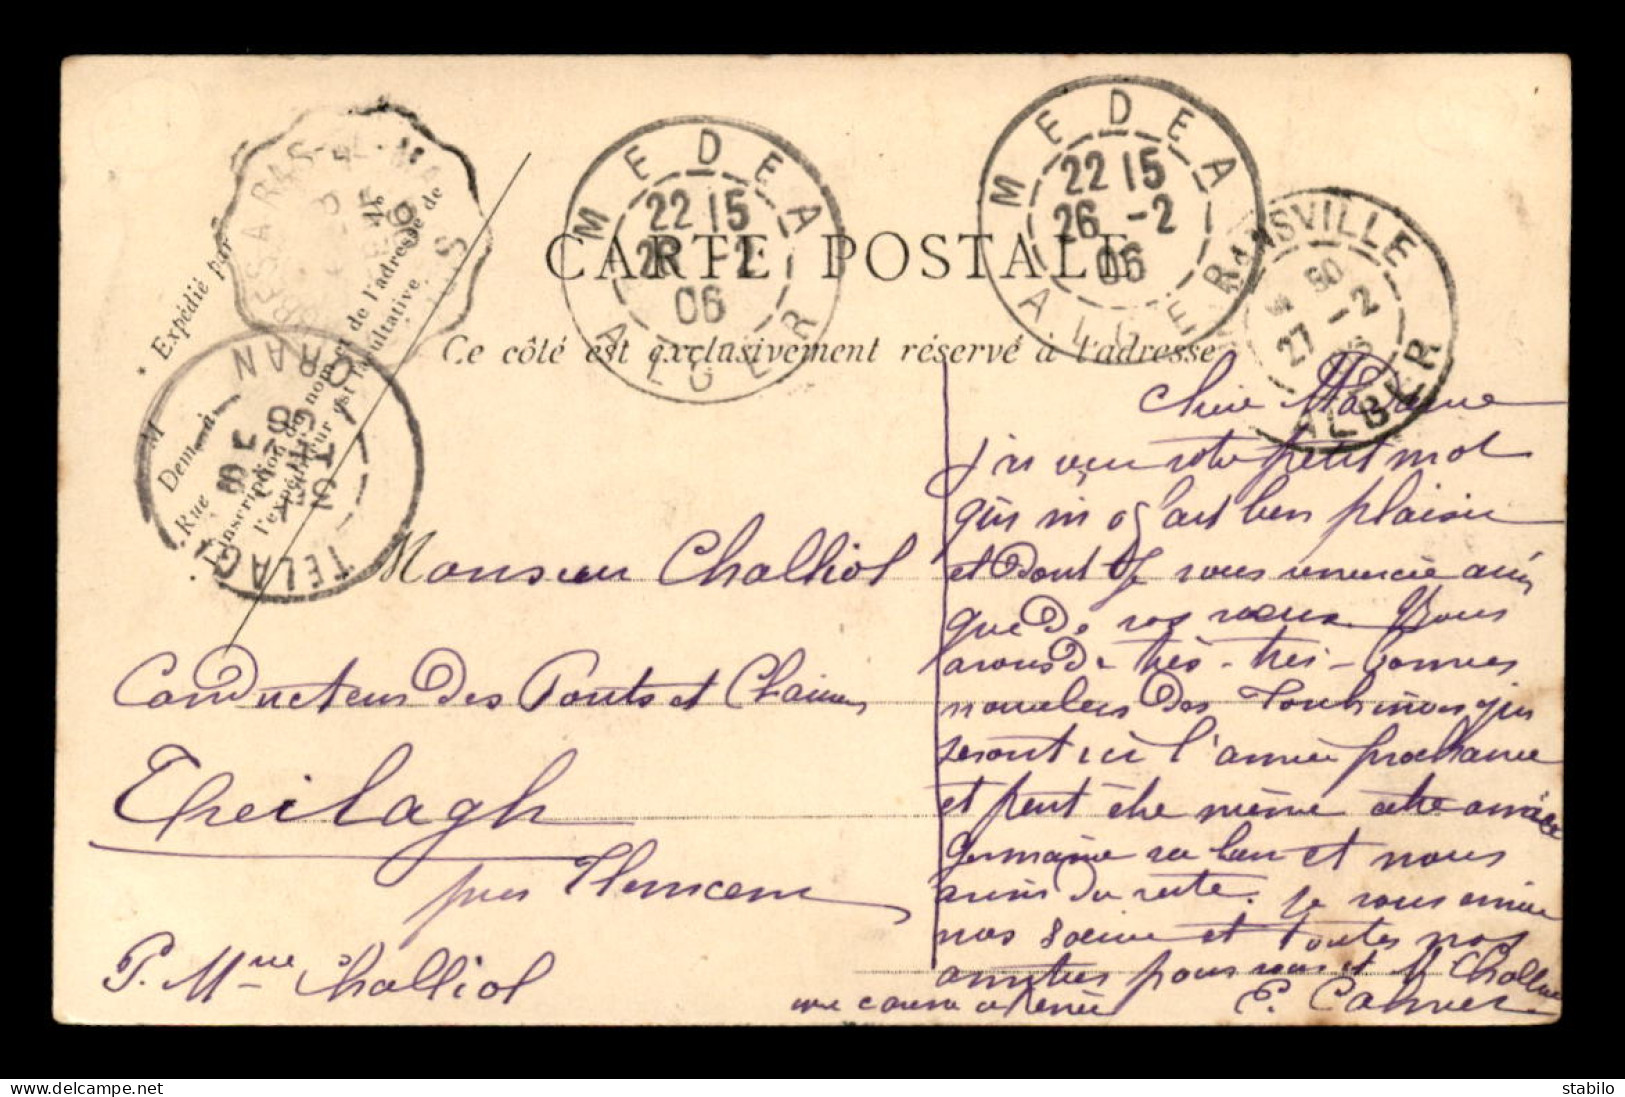 CARTE POSTALE
Ce côté est exclusivement réservé à l'adresse
Expédié par
M
Dem. à
Rue
L'inscription du nom et de l'adresse de
l'expéditeur est facultative
MEDEA
22 15
26 -2
06
ALGER
MEDEA
22 15
26 -2
06
ALGER
ORLEANSVILLE
27 -2
06
ALGER
TELAGH
ORAN
Monsieur Challiol
Conducteur des Ponts et Chaussées
Theilagh
près Tlemcen
P. Mme Challiol
Chère Madame
J'ai reçu votre petit mot
qui m'a fait bien plaisir
et dont je vous remercie ainsi
que de vos vœux. Nous
avons de très-très-bonnes
nouvelles des qui
seront ici l'année prochaine
et peut être même cette année
Germaine va bien et nous
aussi du reste. Je vous envoie
nos et toutes nos
amitiés pour vous et M Challiol
une caresse à René
stabilo
delcampe.net